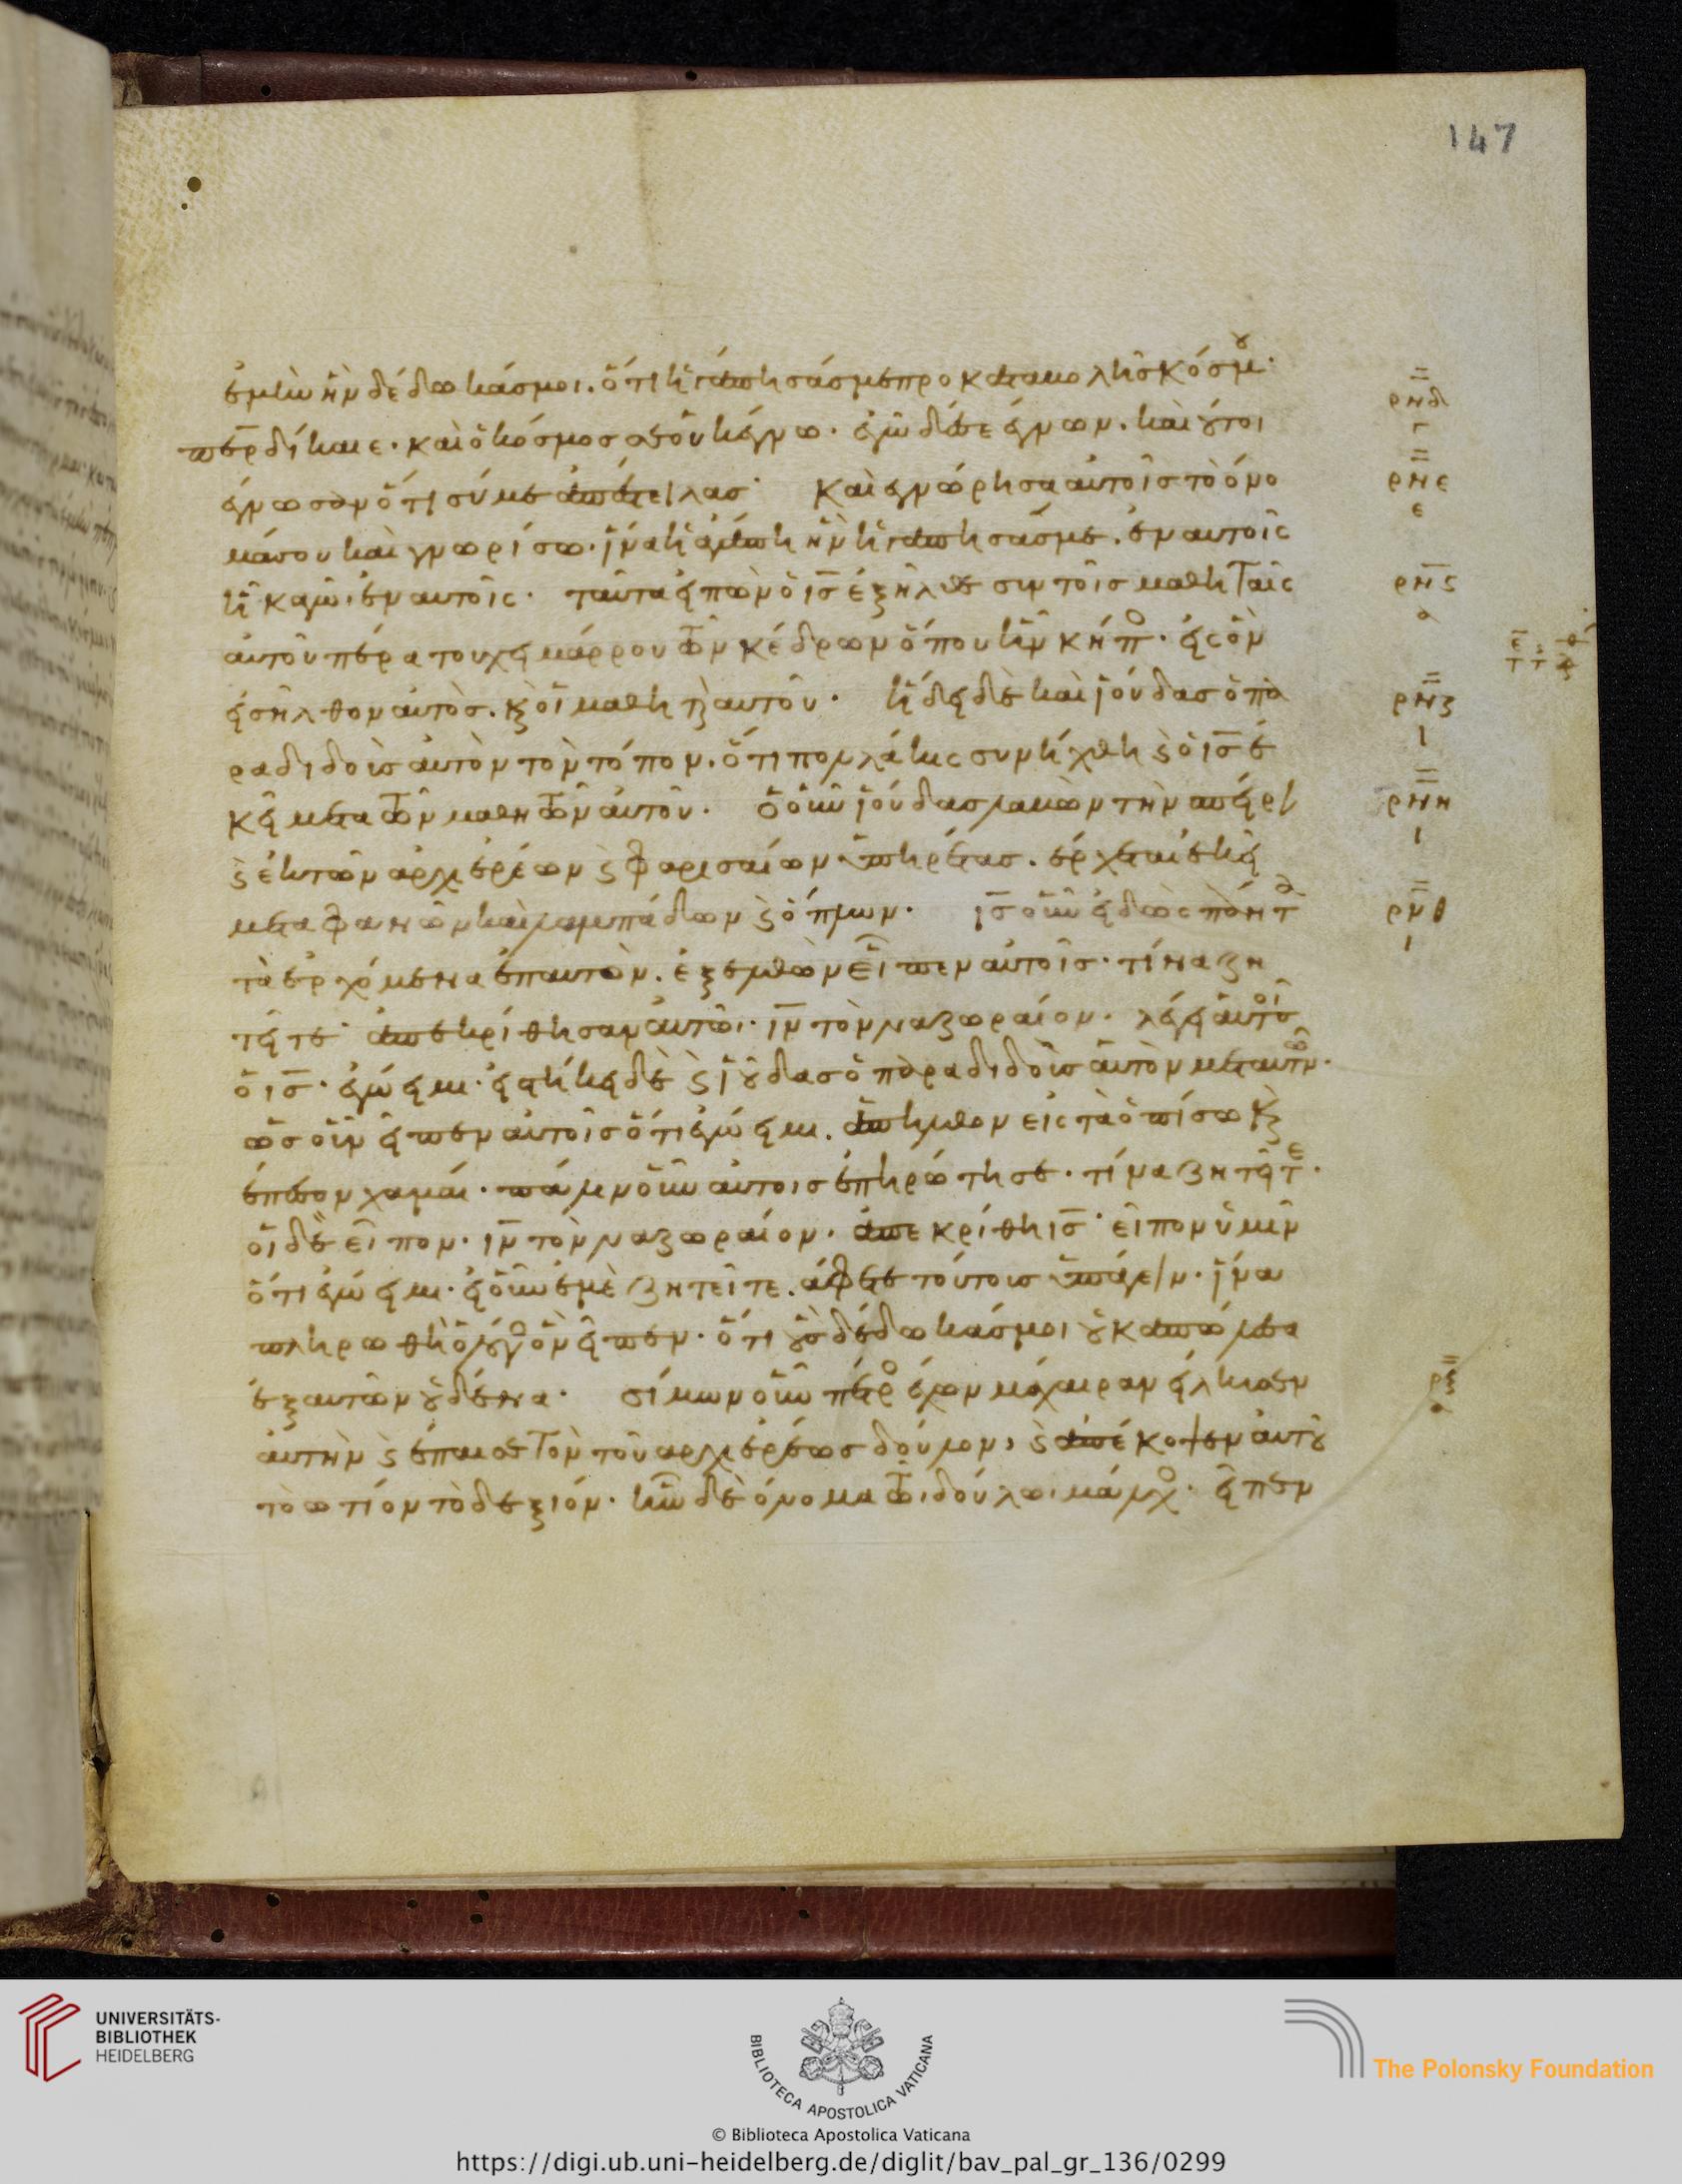 147
ἐμὴν ἣν δέδωκάσ μοι. ὅτι ἠγάπησάσ με προ καταβολῆσ κόσμου·
πε̅ρ δίκαιε· και ὁ κόσμοσ σε οὐκ ἔγνω· ἐγὼ δέ σε ἔγνων. καὶ οὗτοι
ἔγνωσαν ὅτι σύ με ἀπέστειλασ· Και ἐγνώρησα αὐτοῖσ τὸ όνο
μά σου και γνωρίσω· ἵνα ἡ ἀγάπη ἣν ἠγάπησάσ με. ἐν αυτοῖς
ἦ κἀγὼ ἐν αυτοῖς· ταῦτα εἰπὼν ὁ ι̅σ̅ ἐξῆλθε συν τοῖσ μαθηταῖς
αὐτοῦ πέρα του χειμάρρου τῶν κέδρων ὅπου ἦν κήπος· εἰς ὃν
εἰσῆλθον αὐτὸσ. καὶ οἱ μαθηταὶ αυτοῦ· ἤδει δὲ καὶ ἰούδασ ὁ πα
ραδιδοὺσ αὐτὸν τὸν τόπον. ὅτι πολλάκις συνήχθη καὶ ὁ ι̅σ̅ ἐ
κεῖ μετα τῶν μαθητῶν αὐτοῦ. ὁ οὖν ἰούδασ λαβὼν τὴν σπείρα
καὶ ἐκ τῶν αρχιερέων καὶ φαρισαίων ὑπηρέτας. ἔρχεται ἐκεῖ
μετα φανῶν καὶ λαμπάδων καὶ ὅπλων· ι̅σ̅ οὖν εἰδὼς πάντα
τὰ ἐρχόμενα ἐπ αυτὸν. ἐξελθὼν εἶπεν αὐτοῖσ· τίνα ζη
τεῖτε· ἀπεκρίθησαν αὐτῶι· ι̅ν̅ τὸν ναζωραίον. λέγει αὐτοῖσ
ὁ ι̅σ̅· ἐγώ εἰμι· εἱστήκει δὲ καὶ ἰούδασ ὁ παραδιδοὺσ αὐτὸν μετ αυτῶν·
ὡσ οὖν εἶπεν αὐτοῖσ ὅτι ἐγώ εἰμι. ἀπῆλθον εἰς τὰ ὀπίσω καὶ
ἔπεσον χαμαί· πάλιν οὖν αὐτοισ ἐπηρώτησε· τίνα ζητεῖτε·
οἱ δὲ εἶπον· ι̅ν̅ τὸν ναζωραίον· ἀπεκρίθη ι̅σ̅· εἶπον ὑμῖν
ὅτι ἐγώ εἰμι· εἰ οὖν ἐμὲ ζητεῖτε. ἄφετε τούτουσ ὑπάγειν· ἵνα
πληρωθῆ ὁ λόγος ὃν εἶπεν· ὅτι οὓσ δέδωκάσ μοι οὐκ ἀπώλεσα
ἐξ αυτῶν οὐδένα· σίμων οὖν πέτρος ἔχων μάχαιραν εἵλκυσεν
αὐτὴν καὶ ἔπαισε τὸν τοῦ αρχιερέωσ δούλον, καὶ ἀπέκοψεν αὐτοῦ
τὸ ωτίον τὸ δεξιόν· ἦν δὲ όνομα τῶι δούλωι μάλχος· εἶπεν
ρνδ
γ
ρνε
ρνς
ρνζ
ι
ρνη
ι
ρνθ
ι
ρξ
UNIVERSITÄTS-
BIBLIOTHEK
HEIDELBERG
BIBLIOTECA APOSTOLICA VATICANA
The Polonsky Foundation
© Biblioteca Apostolica Vaticana
https://digi.ub.uni-heidelberg.de/diglit/bav_pal_gr_136/0299